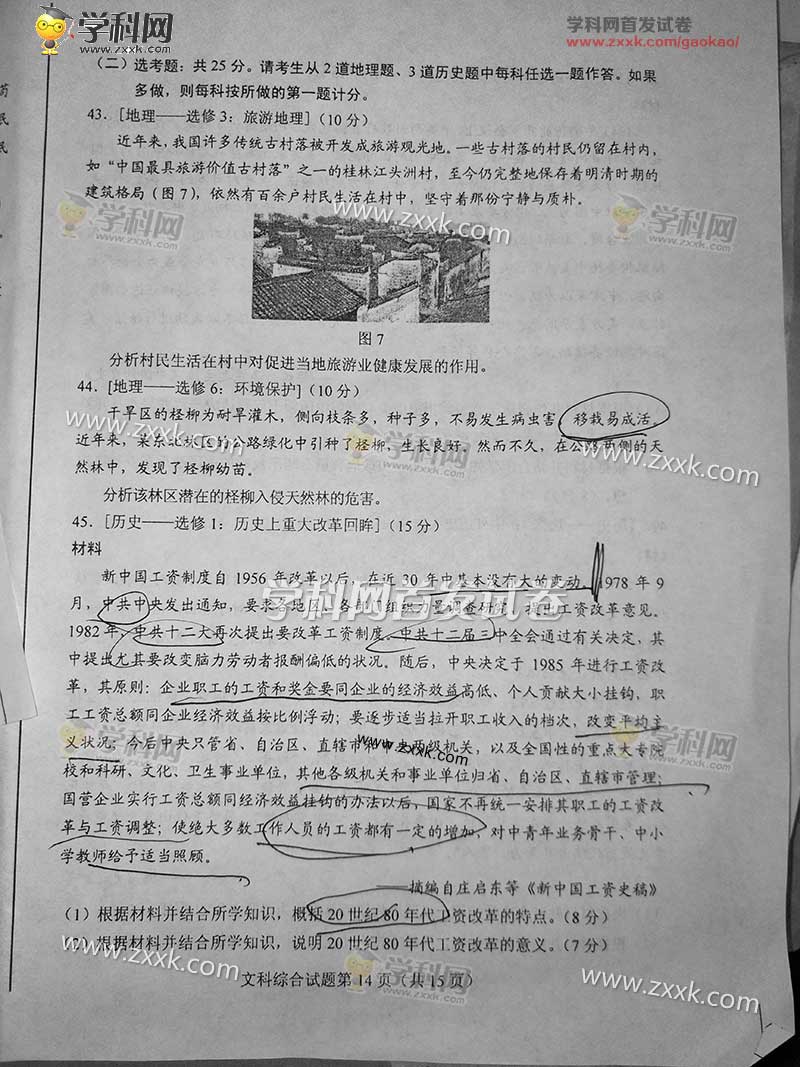 学科网
www.zxxk.com
学科网首发试卷
www.zxxk.com/gaokao/
（二）选考题：共 25 分。请考生从 2 道地理题、3 道历史题中每科任选一题作答。如果
多做，则每科按所做的第一题计分。
43．[地理——选修 3：旅游地理]（10 分）
近年来，我国许多传统古村落被开发成旅游观光地。一些古村落的村民仍留在村内，
如“中国最具旅游价值古村落”之一的桂林江头洲村，至今仍完整地保存着明清时期的
建筑格局（图 7），依然有百余户村民生活在村中，坚守着那份宁静与质朴。
学科网
www.zxxk.com
www.zxxk.com
学科网
www.zxxk.com
图 7
分析村民生活在村中对促进当地旅游业健康发展的作用。
44．[地理——选修 6：环境保护]（10 分）
干旱区的柽柳为耐旱灌木，侧向枝条多，种子多，不易发生病虫害，移栽易成活。
近年来，某东北林区的公路绿化中引种了柽柳，生长良好。然而不久，在公路两侧的天
然林中，发现了柽柳幼苗。
www.zxxk.com
学科网
www.zxxk.com
分析该林区潜在的柽柳入侵天然林的危害。
45．[历史——选修 1：历史上重大改革回眸]（15 分）
材料
新中国工资制度自 1956 年改革以后，在近 30 年中基本没有大的变动。1978 年 9
月，中共中央发出通知，要求各地区、各部门组织力量调查研究，提出工资改革意见。
学科网首发试卷
1982 年，中共十二大再次提出要改革工资制度。中共十二届三中全会通过有关决定，其
中提出尤其要改变脑力劳动者报酬偏低的状况。随后，中央决定于 1985 年进行工资改
革，其原则：企业职工的工资和奖金要同企业的经济效益高低、个人贡献大小挂钩，职
工工资总额同企业经济效益按比例浮动；要逐步适当拉开职工收入的档次，改变平均主
义状况；今后中央只管省、自治区、直辖市和中央两级机关，以及全国性的重点大专院
www.zxxk.com
校和科研、文化、卫生事业单位，其他各级机关和事业单位归省、自治区、直辖市管理；
国营企业实行工资总额同经济效益挂钩的办法以后，国家不再统一安排其职工的工资改
革与工资调整；使绝大多数工作人员的工资都有一定的增加，对中青年业务骨干、中小
学教师给予适当照顾。
——摘编自庄启东等《新中国工资史稿》
（1）根据材料并结合所学知识，概括 20 世纪 80 年代工资改革的特点。（8 分）
（2）根据材料并结合所学知识，说明 20 世纪 80 年代工资改革的意义。（7 分）
文科综合试题第 14 页（共 15 页）
学科网
www.zxxk.com
学科网
www.zxxk.com